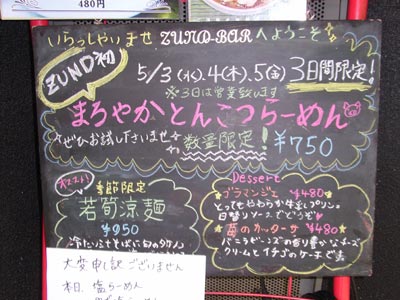 480円
いらっしゃいませ ZUND-BARへようこそ
ZUND初
5/3(水).4(木).5(金) 3日間限定!
※3日は営業致します
まろやかとんこつらーめん
ぜひお試し下さいませ 数量限定! ¥750
オススメ! 季節限定
若筍涼麺
¥950
Dessert
ブラマンジェ ¥480
とってもやわらか牛乳プリン。
日替りソースでどうぞ
苺のカッサータ ¥480
バニラビーンズの香り豊かなチーズ
クリームとイチゴのケーキです
大変申し訳ございません
本日 塩らーめん